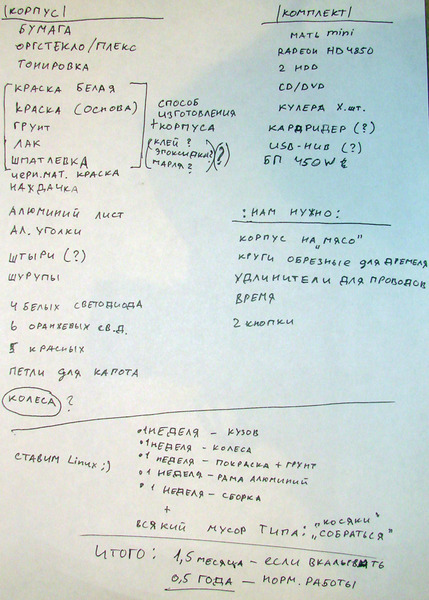 |КОРПУС|
БУМАГА
ОРГСТЕКЛО/ПЛЕКС
ТОНИРОВКА
КРАСКА БЕЛАЯ
КРАСКА (ОСНОВА)
ГРУНТ
ЛАК
ШПАТЛЕВКА
ЧЕРН. МАТ. КРАСКА
НАЖДАЧКА
СПОСОБ
ИЗГОТОВЛЕНИЯ
+КОРПУСА
(КЛЕЙ?
ЭПОКСИДКА?
МАРЛЯ?
(?)
АЛЮМИНИЙ ЛИСТ
АЛ. УГОЛКИ
ШТЫРИ (?)
ШУРУПЫ
4 БЕЛЫХ СВЕТОДИОДА
6 ОРАНЖЕВЫХ СВ.Д.
5 КРАСНЫХ
ПЕТЛИ ДЛЯ КАПОТА
КОЛЕСА ?
|КОМПЛЕКТ|
МАТЬ mini
RADEON HD4850
2 HDD
CD/DVD
КУЛЕРА X.ШТ.
КАРДРИДЕР (?)
USB-HUB (?)
БП 450W
:НАМ НУЖНО:
КОРПУС НА „МЯСО"
КРУГИ ОБРЕЗНЫЕ ДЛЯ ДРЕМЕЛЯ
УДЛИНИТЕЛИ ДЛЯ ПРОВОДОВ
ВРЕМЯ
2 КНОПКИ
СТАВИМ Linux ;)
•1 НЕДЕЛЯ – КУЗОВ
•1 НЕДЕЛЯ – КОЛЕСА
•1 НЕДЕЛЯ – ПОКРАСКА + ГРУНТ
•1 НЕДЕЛЯ – РАМА АЛЮМИНИЙ
•1 НЕДЕЛЯ – СБОРКА
+
ВСЯКИЙ МУСОР ТИПА: „КОСЯКИ" „СОБРАТЬСЯ"
ИТОГО: 1,5 МЕСЯЦА – ЕСЛИ ВКАЛЫВАТЬ
0,5 ГОДА – НОРМ. РАБОТЫ